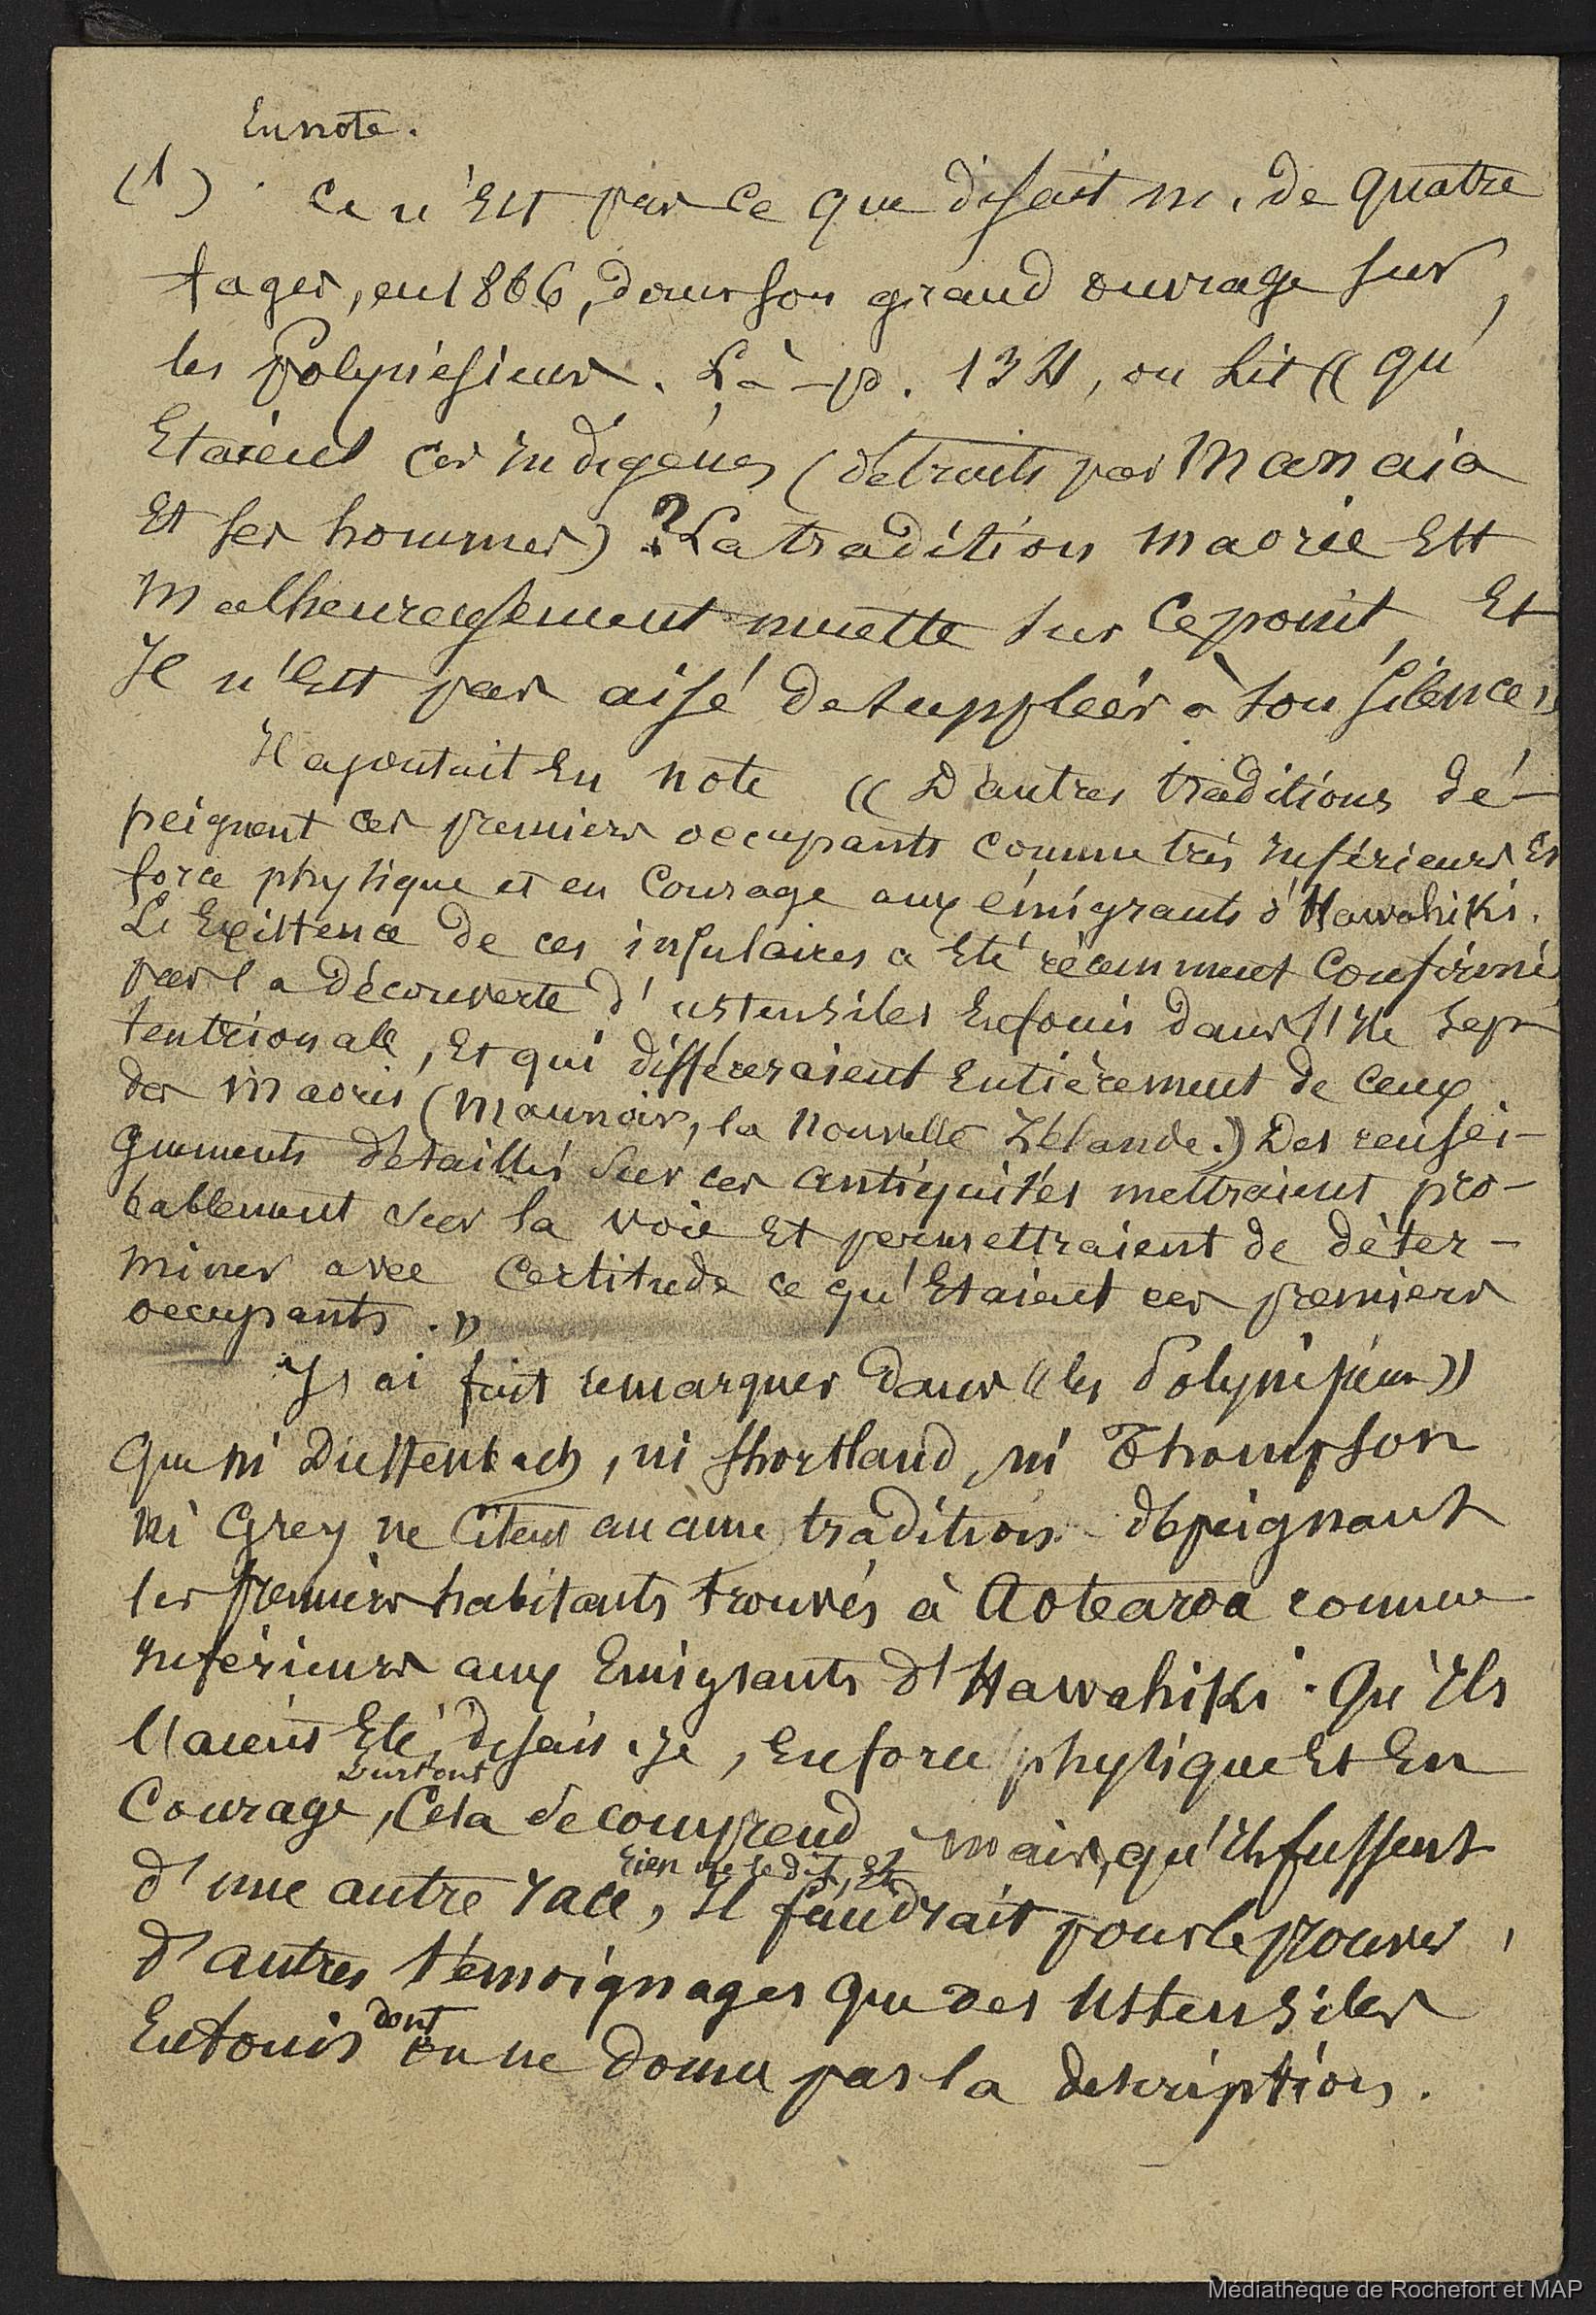 En note.
(1) . Ce n'Est pas ce que disait M. de Quatre
fages, en 1866, dans son grand ouvrage sur
les Polynésiens. Là - p. 134, on lit « qu'
Etaient ces indigènes (détruits par Manaia
Et ses hommes) ? La tradition maorie Est
Malheureusement muette sur ce point, Et
Il n'Est pas aisé de suppléer à son silence »
Il ajoutait En note « D'autres traditions dé-
peignent ces premiers occupants comme très inférieurs En
force physique et en Courage aux émigrants d'Hawahiki.
L'Existence de ces insulaires a Eté récemment Confirmé
par la découverte d'ustensiles Enfouis dans l'Ile Sep
tentrionale, Et qui différeraient Entièrement de Ceux
des Maoris (Maunoir, la Nouvelle Zélande.) Des rensei-
gnements détaillés sur ces antiquités mettraient pro-
bablement sur la voie Et permettraient de déter-
miner avec Certitude ce qu'Etaient ces premiers
occupants. »
J'ai fait remarquer dans « les Polynésiens »
Que ni Dieffenbach, ni Shortland, ni Thompson
ni Grey ne Citent aucune tradition dépeignant
les premiers habitants trouvés à Aotearoa comme
inférieurs aux Emigrants d'Hawahiki. Qu'Ils
l'aient Eté, disais-je, En force physique Et En
Surtout
Courage, Cela se comprend, mais, qu'Ils fussent
rien ne le dit, Et
d'une autre race, Il faudrait pour le prouver,
d'autres témoignages que des Ustensiles
dont
Enfouis on ne donne pas la description.
Médiathèque de Rochefort et MAP